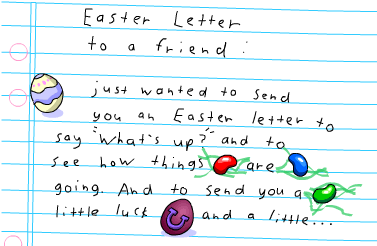 Easter Letter
to a friend:
just wanted to send
you an Easter letter to
say "what's up?" and to
see how things are
going. And to send you a
little luck and a little...